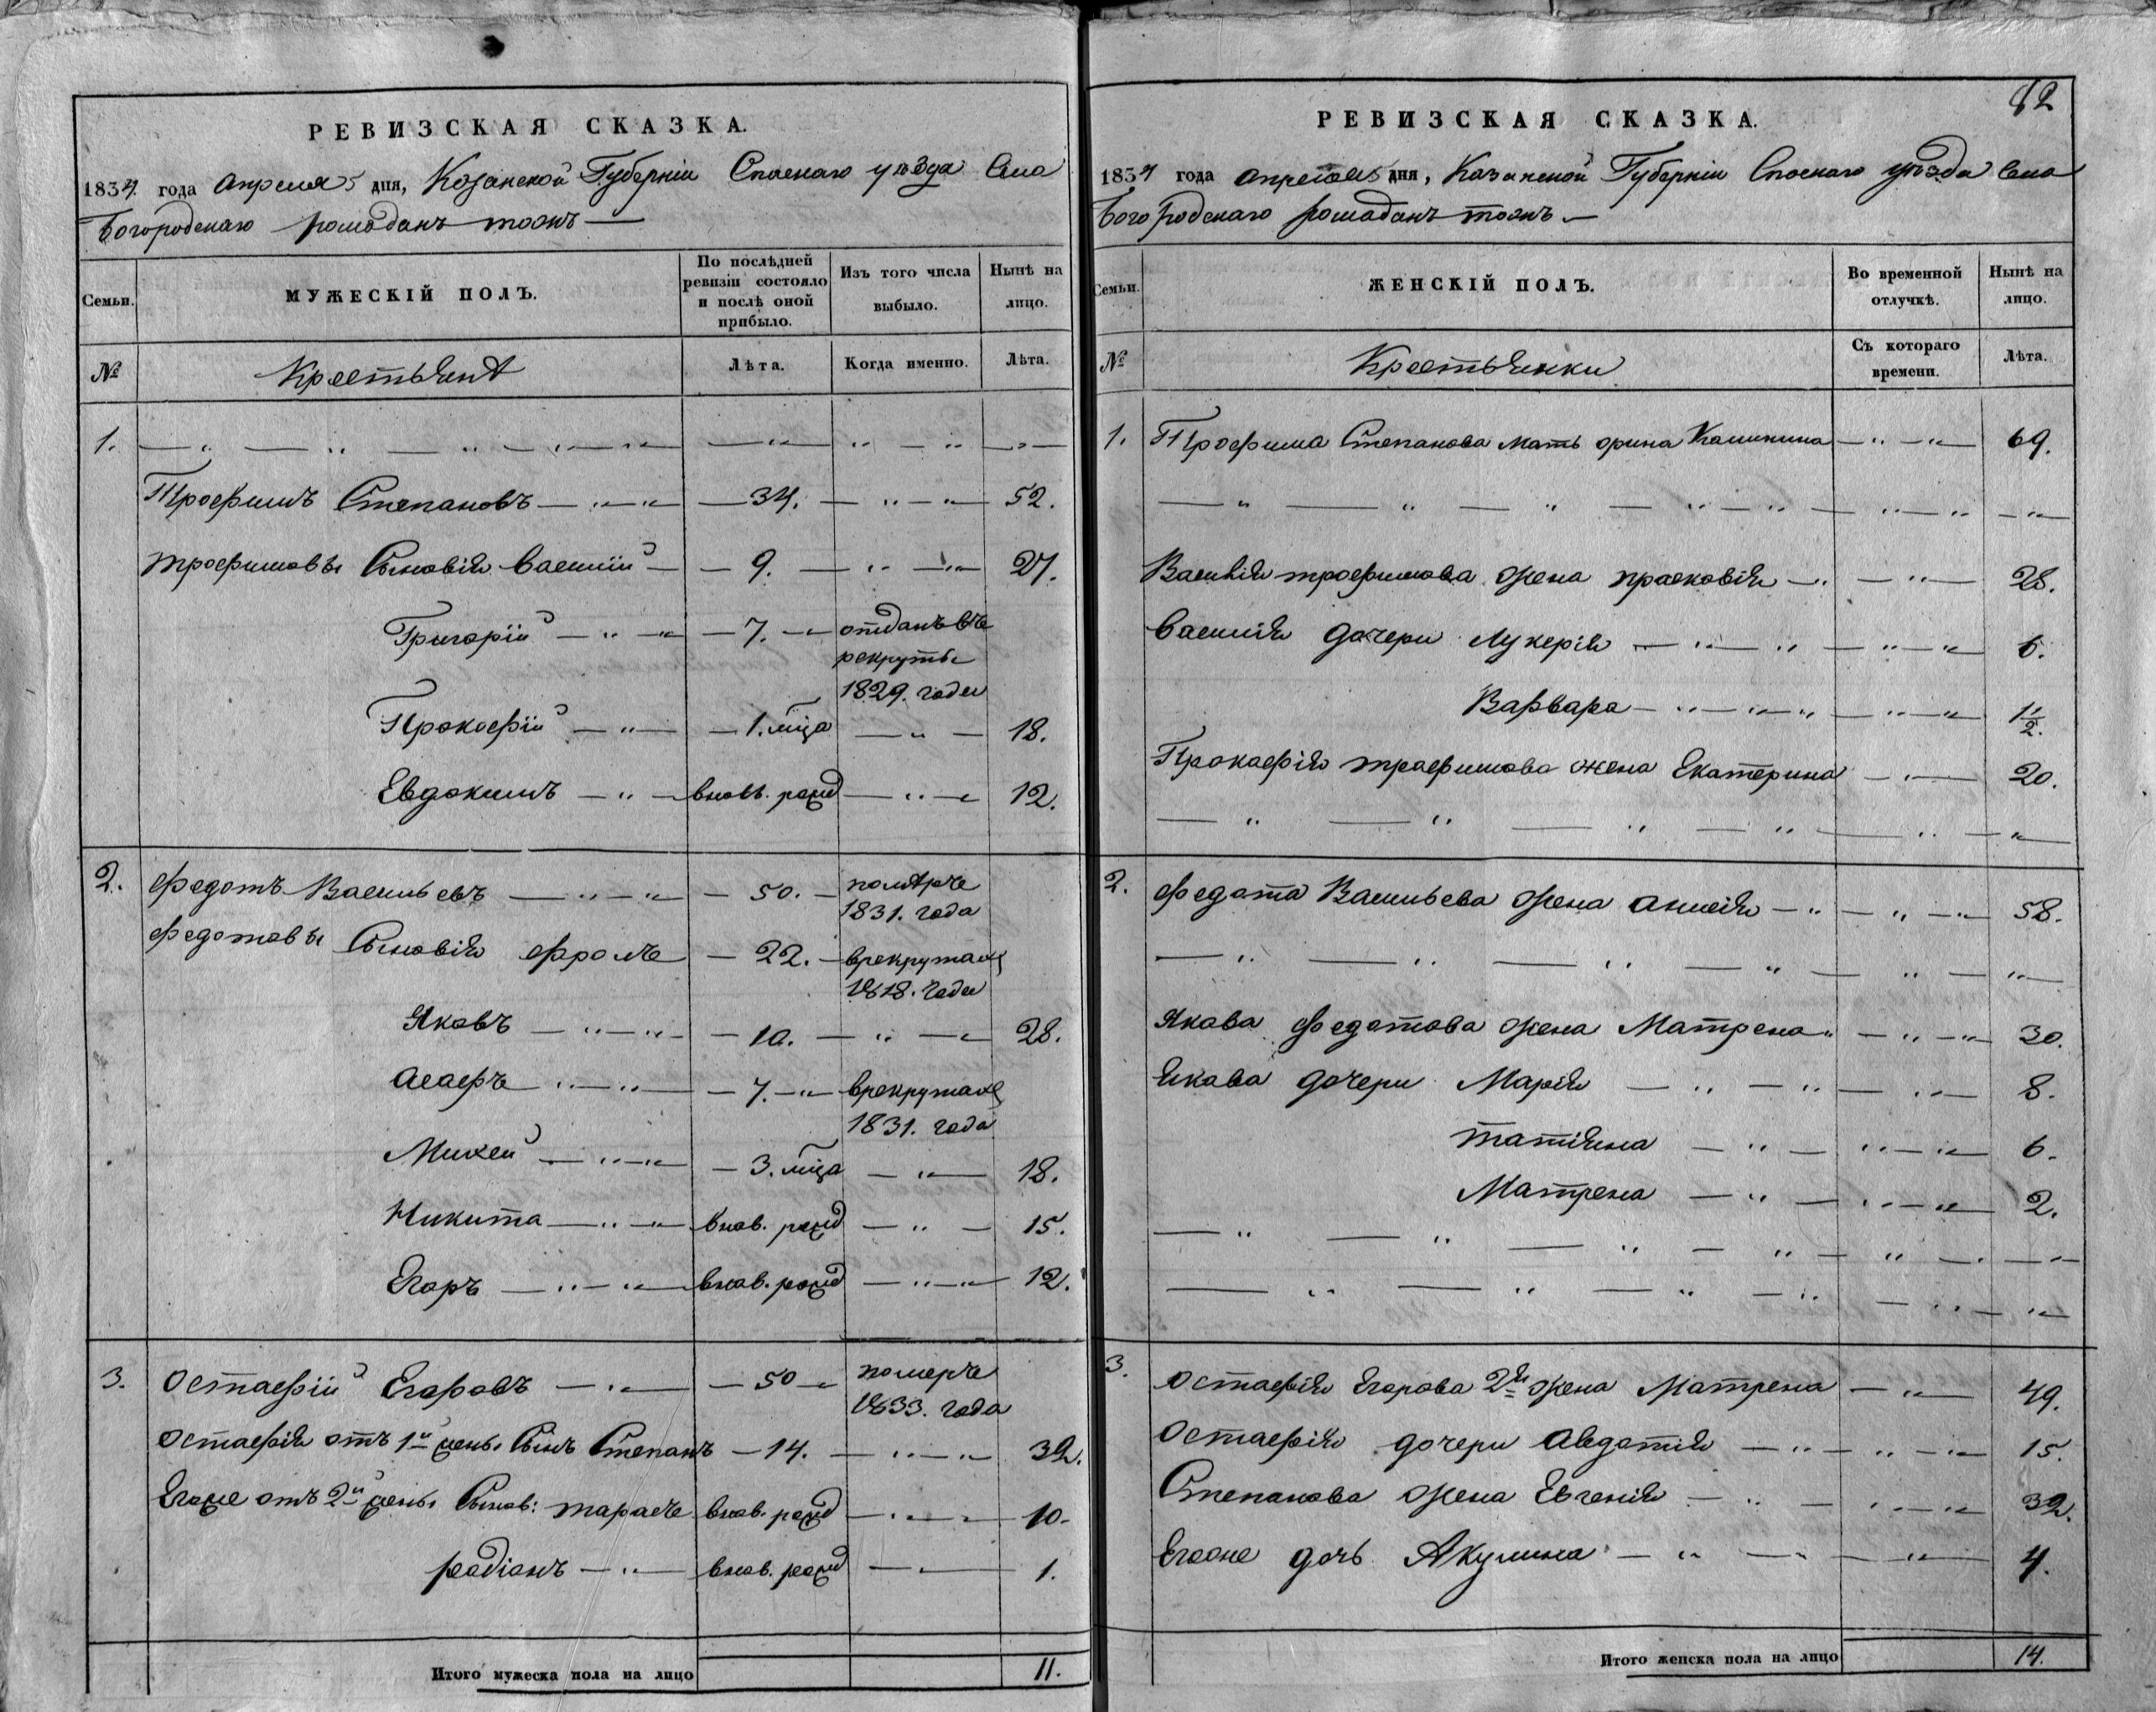 РЕВИЗСКАЯ СКАЗКА.
1834 года апреля 5 дня, Казанской Губерніи Спаскаго уѣзда Села
Богородскаго рамаданъ тожъ
Семьи. МУЖЕСКІЙ ПОЛЪ. По послѣдней ревизіи состояло и послѣ оной прибыло. Изъ того числа выбыло. Нынѣ на лицо.
№ Крестьяне Лѣта. Когда именно. Лѣта.
1.
Трофимъ Степановъ 34. 52.
трофимовы Сыновія Василій 9. 27.
Григорій 7. отданъ въ рекруты 1829. года
Прокофій 1. мца 18.
Евдокимъ вновь. рожд 12.
2. Федотъ Васильевъ 50. помѣрче 1831. года
Федотовы Сыновія фролъ 22. врекрутахъ 1818. года
Яковъ 10. 28.
Асафъ 7. врекрутахъ 1831. года
Михей 3. мца 18.
Никита внов. рожд 15.
Егоръ внов. рожд 12.
3. Остафій Егоровъ 50 померъ 1833. года
Остафія отъ 1й жены Сынъ Степанъ 14. 32.
Егоже отъ 2й жены Сынов: тарасъ внов. рожд 10.
радіонъ внов. рожд 1.
Итого мужеска пола на лицо 11.
82
РЕВИЗСКАЯ СКАЗКА.
1834 года апреля 5 дня, Казанской Губерніи Спаскаго уѣзда Села
Богородскаго рамаданъ тожъ
Семьи. ЖЕНСКІЙ ПОЛЪ. Во временной отлучкѣ. Нынѣ на лицо.
№ Крестьянки Съ котораго времени. Лѣта.
1. Трофима Степанова мать орина Калинина 69.
Василія трофимова жена прасковія 28.
Василія дочери Лукерія 6.
Варвара 1 1/2.
Прокафія трафимова жена Екатерина 20.
2. Федота Васильева жена анисія 58.
Якова Федотова жена Матрена 30.
Якова дочери Марія 8.
татіяна 6.
Матрена 2.
3. Остафія Егорова 2я жена Матрена 49.
Остафія дочери Авдотія 15.
Степанова жена Евгенія 32.
Егоже дочь Акулина 4.
Итого женска пола на лицо 14.